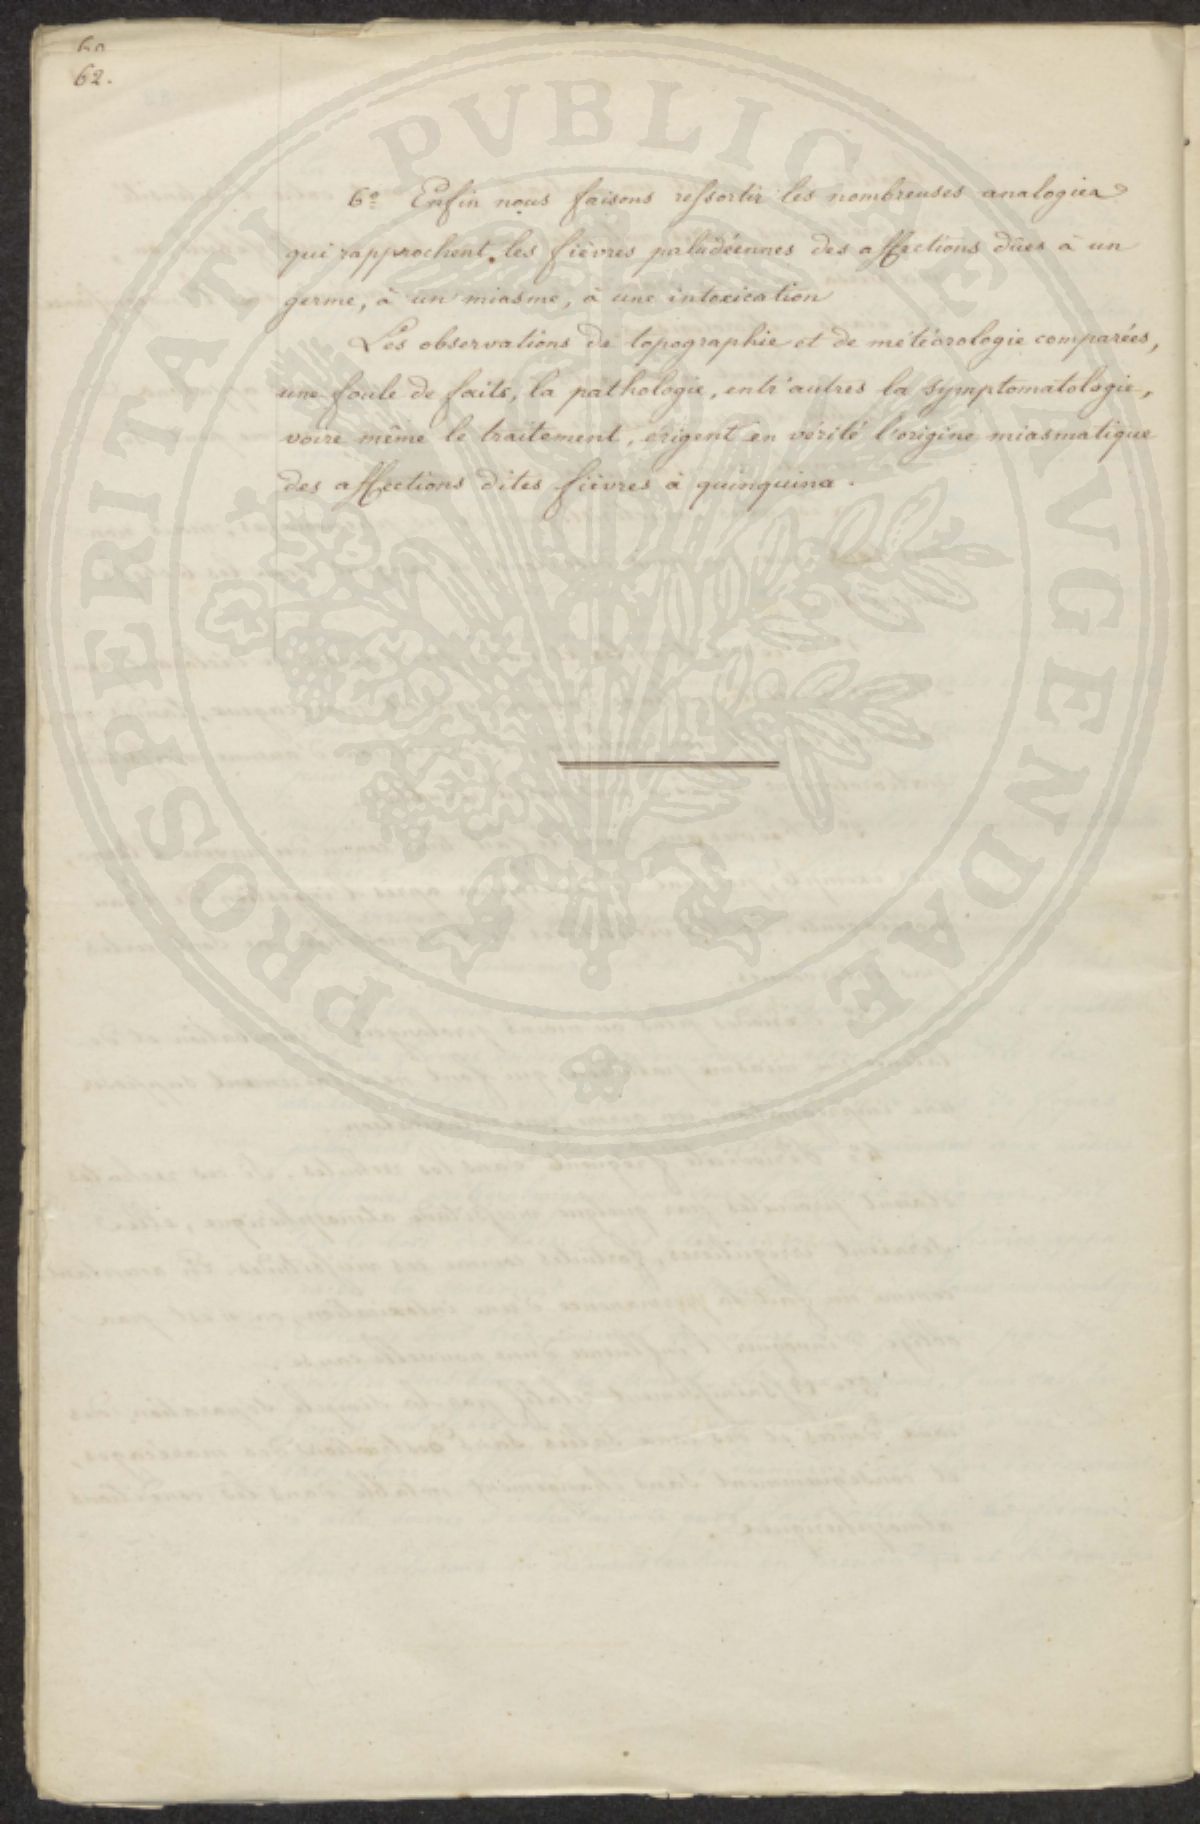 60
62.
6º Enfin nous faisons ressortir les nombreuses analogies
qui rapprochent les fièvres paludéennes des affections dûes à un
germe, à un miasme, à une intoxication
Les observations de topographie et de météorologie comparées,
une foule de faits, la pathologie, entr'autres la symptomatologie,
voire même le traitement, érigent en vérité l'origine miasmatique
des affections dites fièvres à quinquina.
PROSPERITATI PVBLICAE AVGENDAE